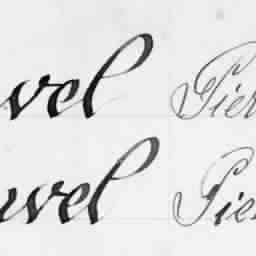 vel Pier
wel Pier